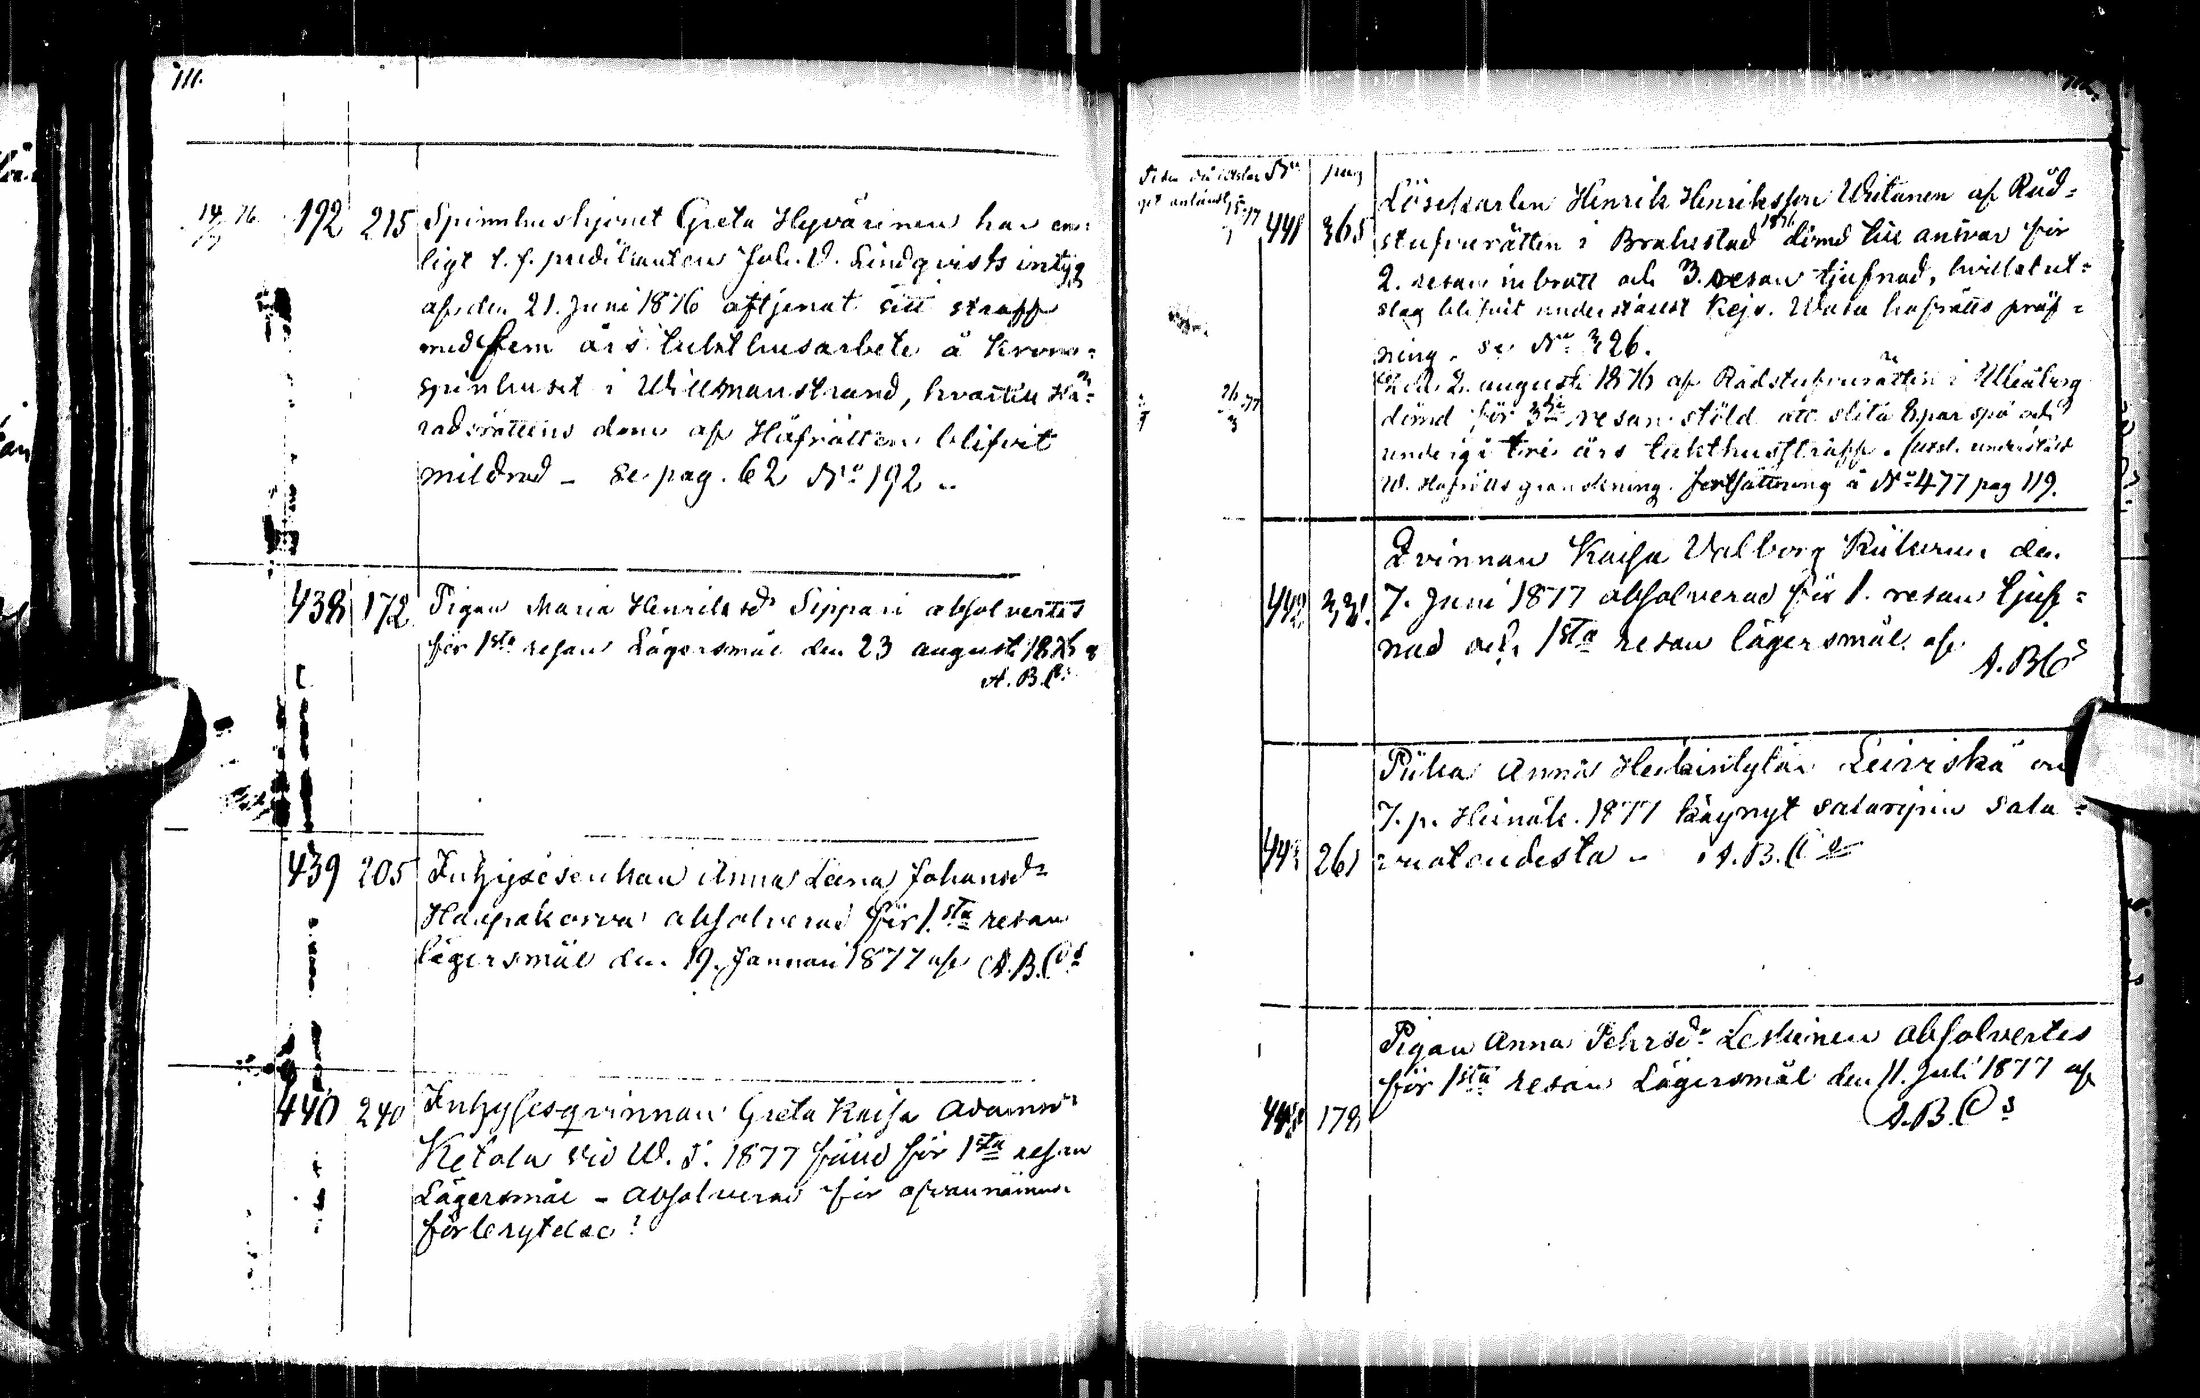 111.
14/7 76. 192 215 Spinnhushjonet Greta Hyvärinen har en-
ligt t. f. predikanten Joh. V. Lindqvists intyg
af den 21. Juni 1876 aftjenat sitt straff
med fem års tukthusarbete å krono-
spinhuset i Willmanstrand, hvartill Hä-
radsrättens dom af Hofrätten blifvit
mildrad – se pag. 62 No 192 ..
438 172 Pigan Maria Henriksdr Sippari absolvertes
för 1sta resan Lägersmål den 23 augusti 1876 af
A. B. Cs
439 205 Inhysesenkan Anna Leena Johansdr
Haapakorva absolverad för 1.sta resan
lägersmål den 19. Januari 1877 af A.B.Cs
440 240 Inhysesqvinnan Greta Kaisa Adamsdr
Ketola vid W. T. 1877 fäld för 1sta resan
Lägersmål – absolverad för ofvannämnde
förbrytelse!
No pag
441 365 Löskarlen Henrik Henriksson Witanen af Råd-
stufvurätten i Brahestad 1876 dömd till ansvar för
2. resan inbrott och 3. resan tjufnad, hvilket ut-
slag blifvit understäldt Kejs. Wasa hofrätts pröf-
ning. se No 326.
den 2. augusti 1876 af Rådstufvurätten i Uleåborg
dömd för 3dje resan stöld att slita par spö och
undergå tre års tukthusstraff. underställd
W. Hofrätts granskning. fortsättning å No 477 pag 119.
442 331. Qvinnan Kaisa Valborg den
7. Juni 1877 absolverad för 1. resan tjuf-
nad och 1sta resan lägersmål af
A. B Cs
443 261 Piika Anna Heikintytär Leiviskä on
7. p. Heinäk. 1877 käynyt salaripin sala-
vuoteudesta – A.B.Cs
444 178 Pigan Anna Pehrsdr Leskinen absolvertes
för 1sta resan Lägersmål den 11. Juli 1877 af
A.B.Cs